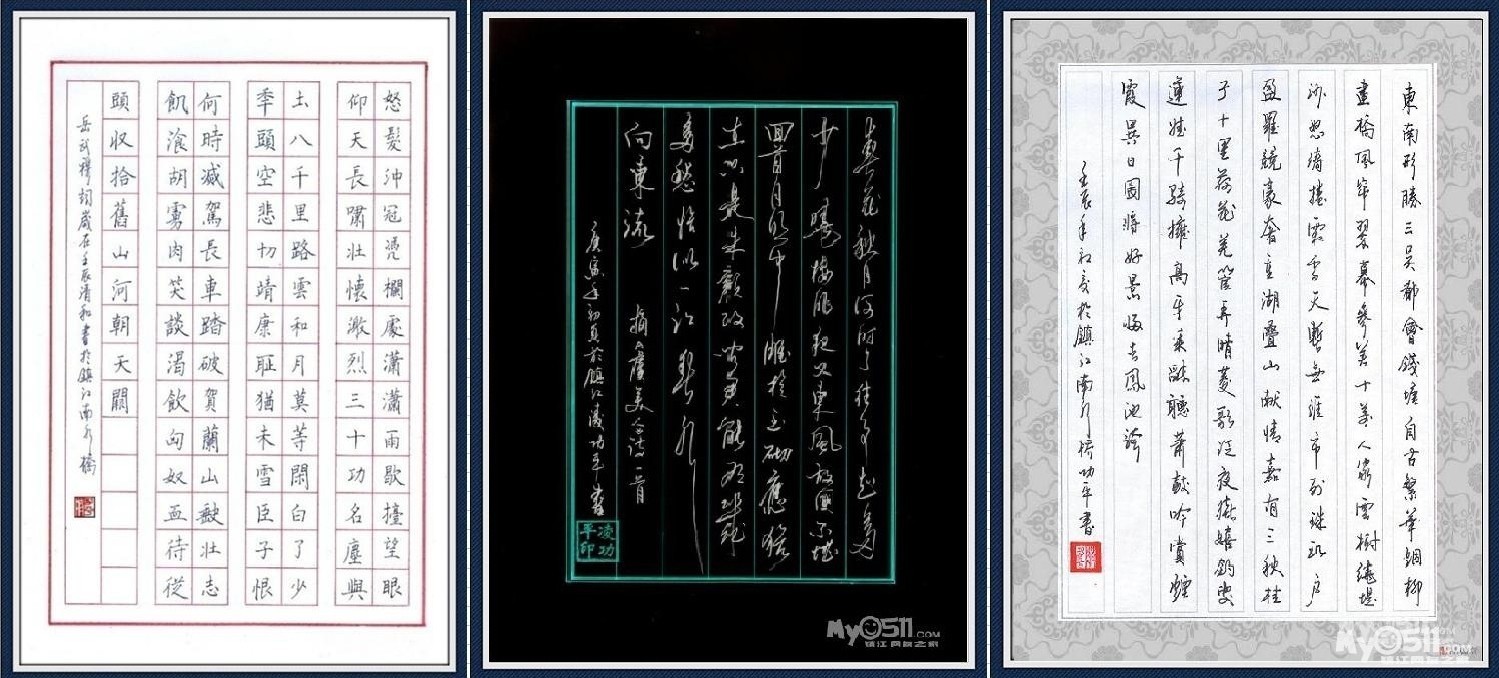 怒髮沖冠凴欄處瀟瀟雨歇擡望眼
仰天長嘯壯懷激烈三十功名塵與
土八千里路雲和月莫等閑白了少
秊頭空悲切靖康耻猶未雪臣子恨
何時滅駕長車踏破賀蘭山缺壯志
飢湌胡虜肉笑談渴飲匈奴血待從
頭収拾舊山河朝天闕
岳武穆詞歲在壬辰清和書於鎮江南橋
春花秋月何時了往事知多
少小樓昨夜又東風故國不堪
回首月明中雕欄玉砌應猶
在只是朱顏改問君能有幾
多愁恰似一江春水
向東流 摘虞美人詞一首
庚寅年初夏於鎮江凌功平書
凌功平印
東南形勝三吳都會錢塘自古繁華烟柳
畫橋風簾翠幕參差十萬人家雲樹繞堤
沙怒濤捲霜雪天塹無涯市列珠璣戶
盈羅競豪奢重湖疊山献情嘉有三秋桂
子十里荷花羌管弄晴菱歌泛夜嬉嬉釣叟
蓮娃千騎擁高牙乘醉聽蕭鼓吟賞煙
霞異日圖將好景歸去鳳池誇
壬辰年初夏於鎮江南橋功平書
MyO511.COM
MyO511.COM